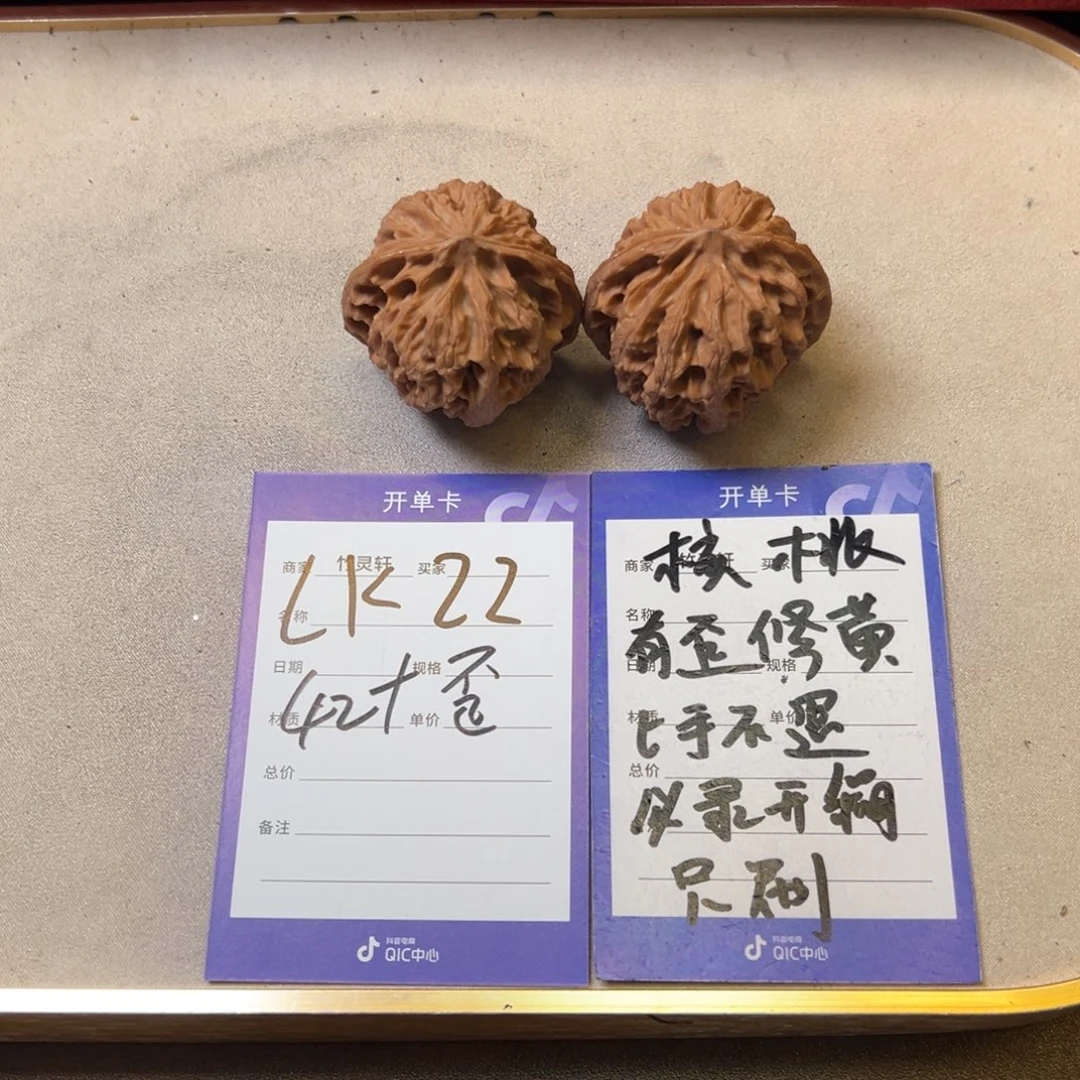 开单卡
商家 竹灵轩 买家
LK 22
名称
日期 规格
42+ 歪
材质 单价
总价
备注
抖音电商
QIC中心
开单卡
商家 竹灵轩 买家
核桃
名称
有歪修黄
日期 规格
材质 单价
上手不退
总价
必录开绷
只刷
抖音电商
QIC中心